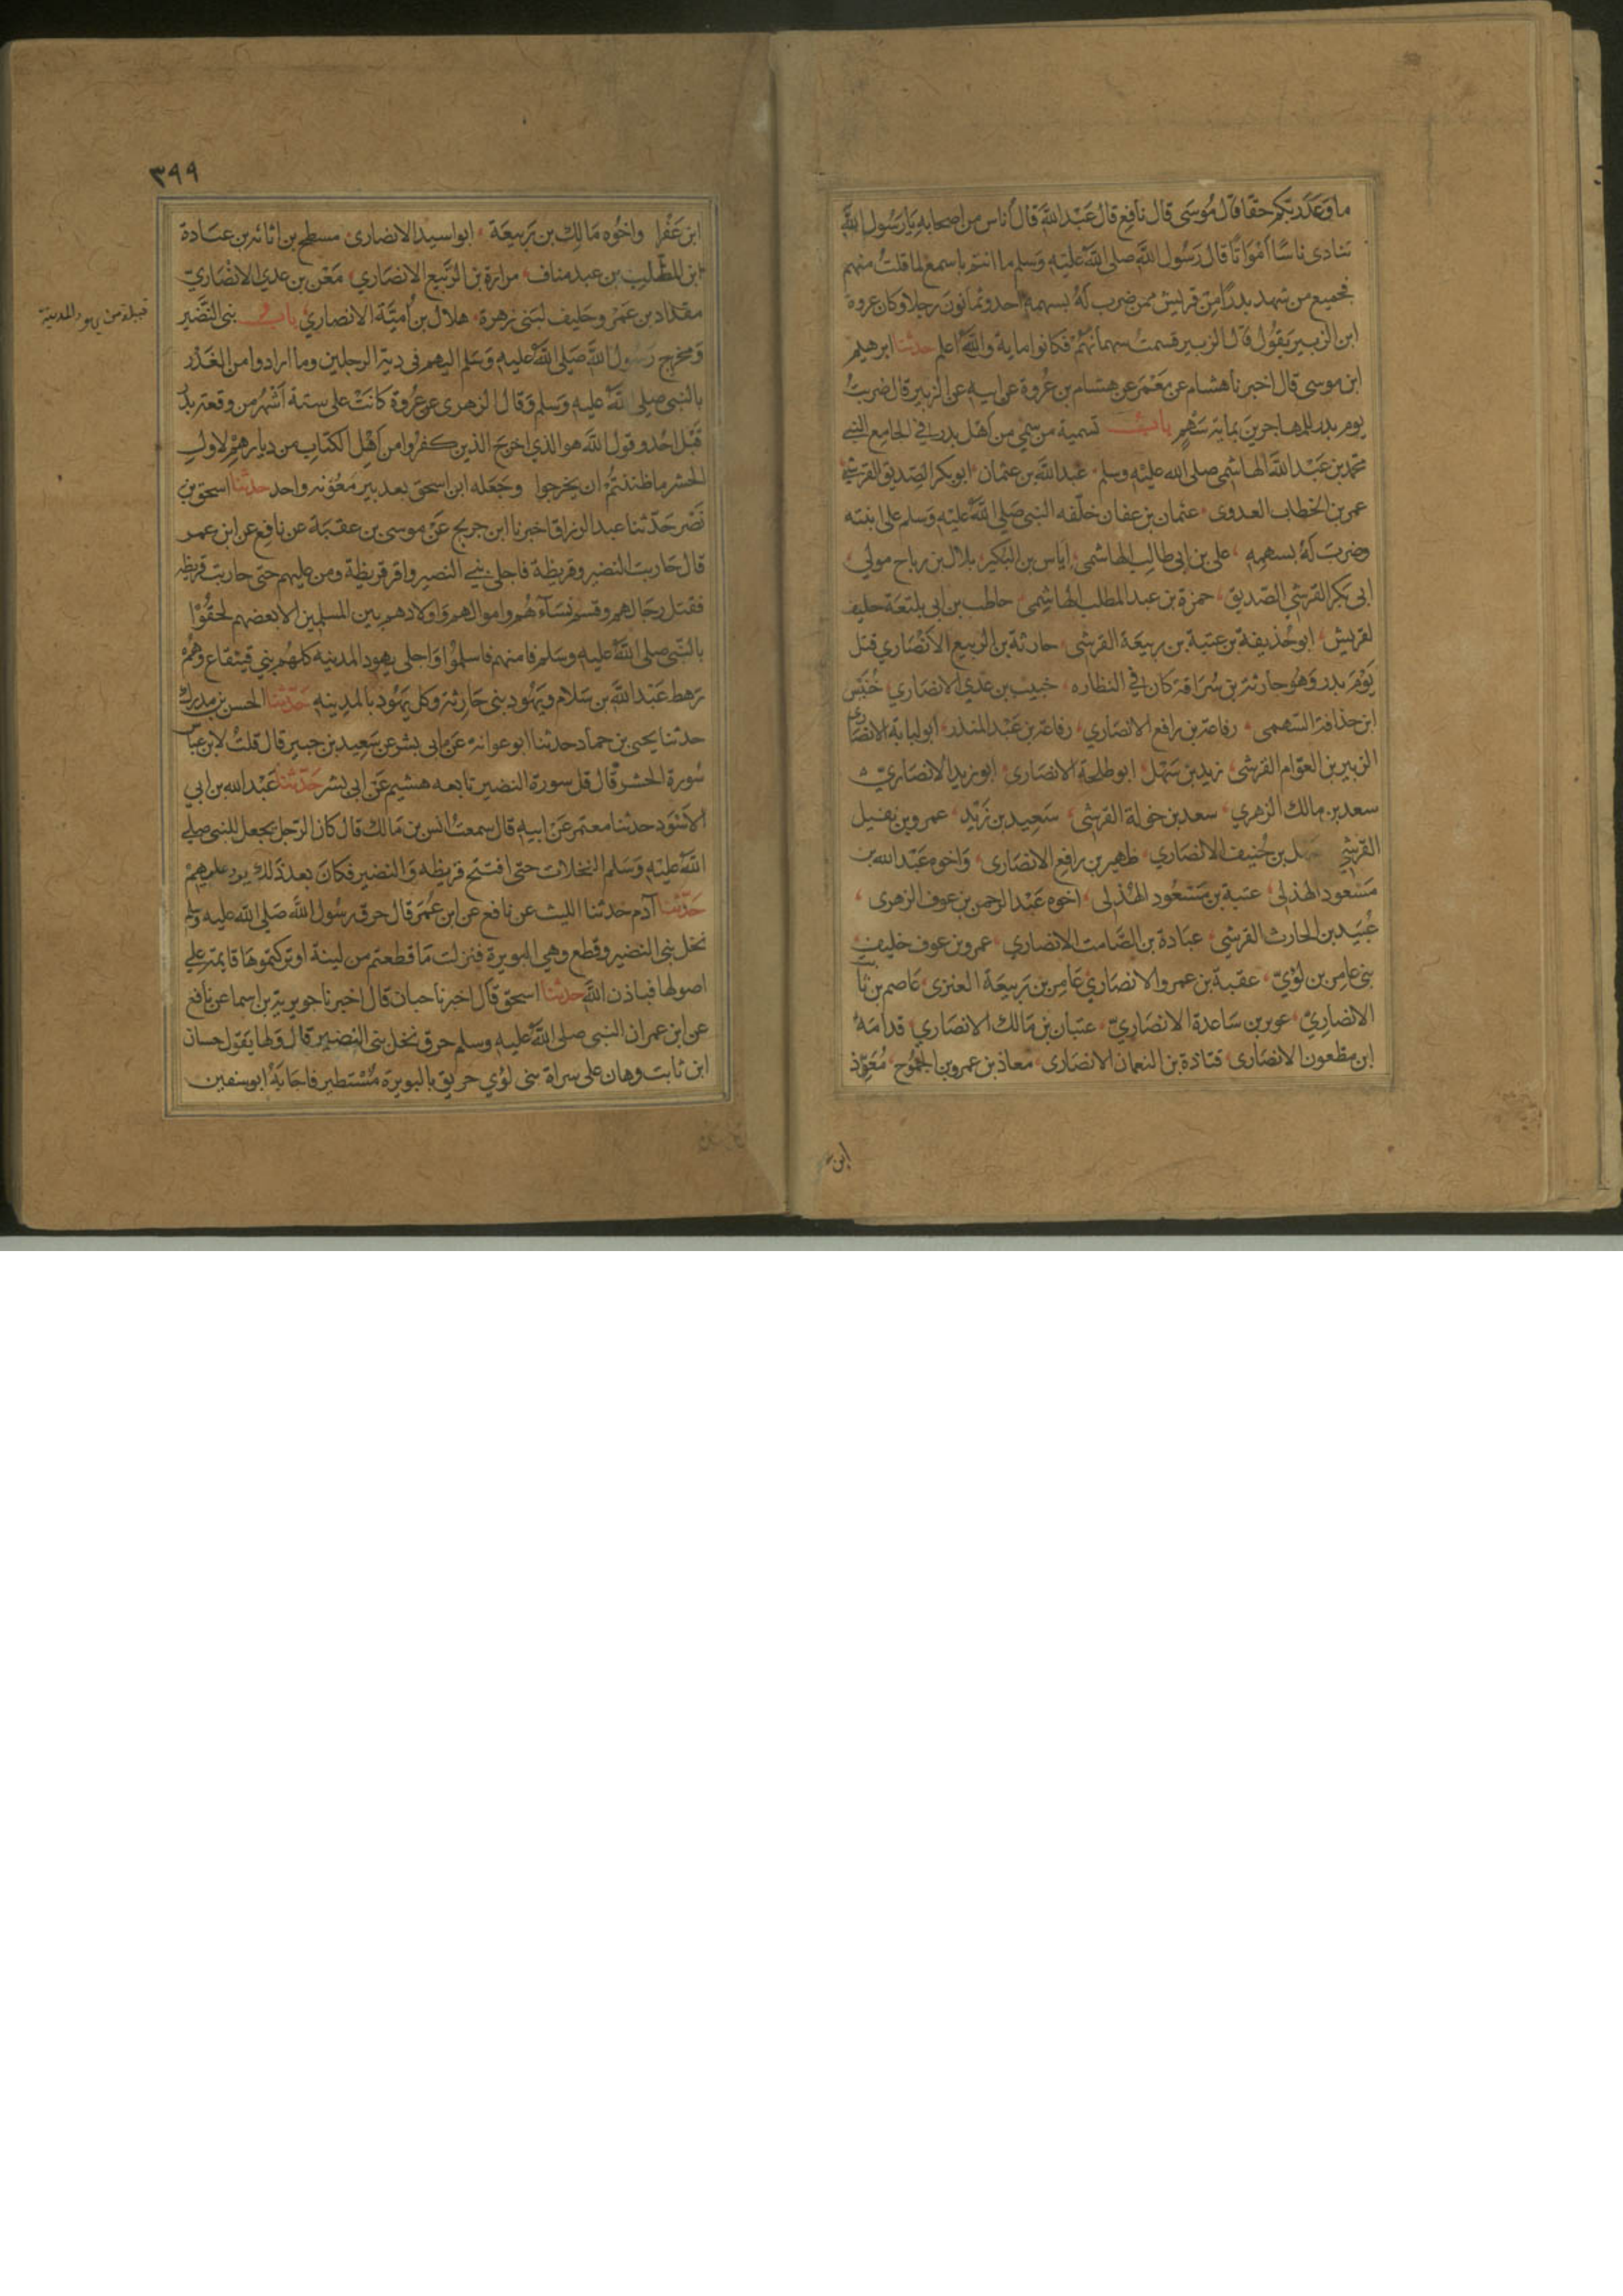 ما وعدكم ربكم حقا قال موسى قال نافع قال عبد الله قال أناس من اصحابه يا رسول الله
تنادى ناسًا امواتًا قال رسول الله صلى الله عليه وسلم ما انتم باسمع لما قلت منهم
فجميع من شهد بدرًا من قريش ممن ضرب له بسهمه احد وثمانون رجلا وكان عروة
ابن الزبير يقول قال الزبير قسمت سهمانهم فكانوا ماية والله اعلم حدثنا ابرهيم
ابن موسى قال اخبرنا هشام عن معمر عن هشام بن عروة عن ابيه عن الزبير قال ضربت
يوم بدر للمهاجرين بماية سهم باب تسمية من سمي من اهل بدر في الجامع النبي
محمد بن عبد الله الهاشمي صلى الله عليه وسلم عبد الله بن عثمان ابو بكر الصديق القرشي
عمر بن الخطاب العدوى عثمان بن عفان خلّفه النبي صلى الله عليه وسلم على ابنته
وضرب له بسهمه على بن ابى طالب الهاشمى اياس بن البكير بلال بن رباح مولى
ابى بكر القرشي الصديق حمزة بن عبد المطلب الهاشمى حاطب بن ابى بلتعة حليف
لقريش ابو حذيفة بن عتبة بن ربيعة القرشى حارثة بن الربيع الأنصاري قتل
يوم بدر وهو حارثة بن سراقة كان في النظاره خبيب بن عدي الانصاري خنيس
ابن حذافة السهمى رفاعة بن رافع الانصاري رفاعة بن عبد المنذر ابو لبابة الانصاري
الزبير بن العوّام القرشى زيد بن سهل ابو طلحة الانصارى ابو زيد الانصاري
سعد بن مالك الزهري سعد بن خولة القرشى سعيد بن زيد عمرو بن نفيل
القرشي بن حنيف الانصاري ظهير بن رافع الانصارى واخوه عبد الله بن
مسعود الهذلى عتبة بن مسعود الهذلى اخوه عبد الرحمن بن عوف الزهرى
عبيد بن الحارث القرشي عبادة بن الصامت الانصاري عمرو بن عوف حليف
بنى عامر بن لؤي عقبة بن عمرو الانصاري عامر بن ربيعة العنزى عاصم بن ثابت
الانصاري عويمر بن ساعدة الانصاري عتبان بن مالك الانصاري قدامة
ابن مظعون الانصارى قتادة بن النعمان الانصارى معاذ بن عمرو بن الجموح معوّذ
ابن
٣٩٩
ابن عفرا واخوه مالك بن ربيعة ابو اسيد الانصارى مسطح بن اثاثه بن عبادة
ابن المطلب بن عبد مناف مرارة بن الربيع الانصاري معن بن عدي الانصاري
مقداد بن عمرو حليف لبنى زهرة هلال بن أمية الانصاري باب بنى النضير
ومخرج رسول الله صلى الله عليه وسلم اليهم فى دية الرجلين وما ارادوا من الغدر
بالنبى صلى الله عليه وسلم وقال الزهرى عن عروة كانت على ستة أشهر من وقعة بدر
قبل احد وقول الله هو الذي اخرج الذين كفروا من اهل الكتاب من ديارهم لاول
الحشر ما ظننتم ان يخرجوا وجعله ابن اسحق بعد بير معونه واحد حدثنا اسحق بن
نصر حدثنا عبد الرزاق اخبرنا ابن جريج عن موسى بن عقبة عن نافع عن ابن عمر
قال حاربت النضير وقريظة فاجلى بنى النضير واقر قريظة ومن عليهم حتى حاربت قريظه
فقتل رجالهم وقسم نساءهم واموالهم واولادهم بين المسلمين الا بعضهم لحقوا
بالنبى صلى الله عليه وسلم فامنهم فاسلموا واجلى يهود المدينة كلهم بني قينقاع وهم
رهط عبد الله بن سلام ويهود بنى حارثة وكل يهود بالمدينه حدثنا الحسن بن مدرك
حدثنا يحيى بن حماد حدثنا ابو عوانه عن ابى بشر عن سعيد بن جبير قال قلت لابن عباس
سورة الحشر قال قل سورة النضير تابعه هشيم عن ابى بشر حدثنا عبد الله بن ابي
الاسود حدثنا معتمر عن ابيه قال سمعت انس بن مالك قال كان الرجل يجعل للنبى صلى
الله عليه وسلم النخلات حتى افتتح قريظه والنضير فكان بعد ذلك يرد عليهم
حدثنا آدم حدثنا الليث عن نافع عن ابن عمر قال حرق رسول الله صلى الله عليه وسلم
نخل بنى النضير وقطع وهي البويرة فنزلت ما قطعتم من لينة او تركتموها قايمة على
اصولها فباذن الله حدثنا اسحق قال اخبرنا حبان قال اخبرنا جويرية بن اسما عن نافع
عن ابن عمر ان النبى صلى الله عليه وسلم حرق نخل بنى النضير قال ولها يقول حسان
ابن ثابت وهان على سراة بنى لؤي حريق بالبويرة مستطير فاجابه ابو سفين
قبيلة من يهود المدينة